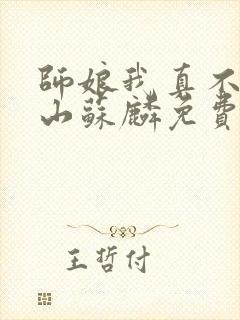 師娘我真不
山蘇麟免費
王哲付